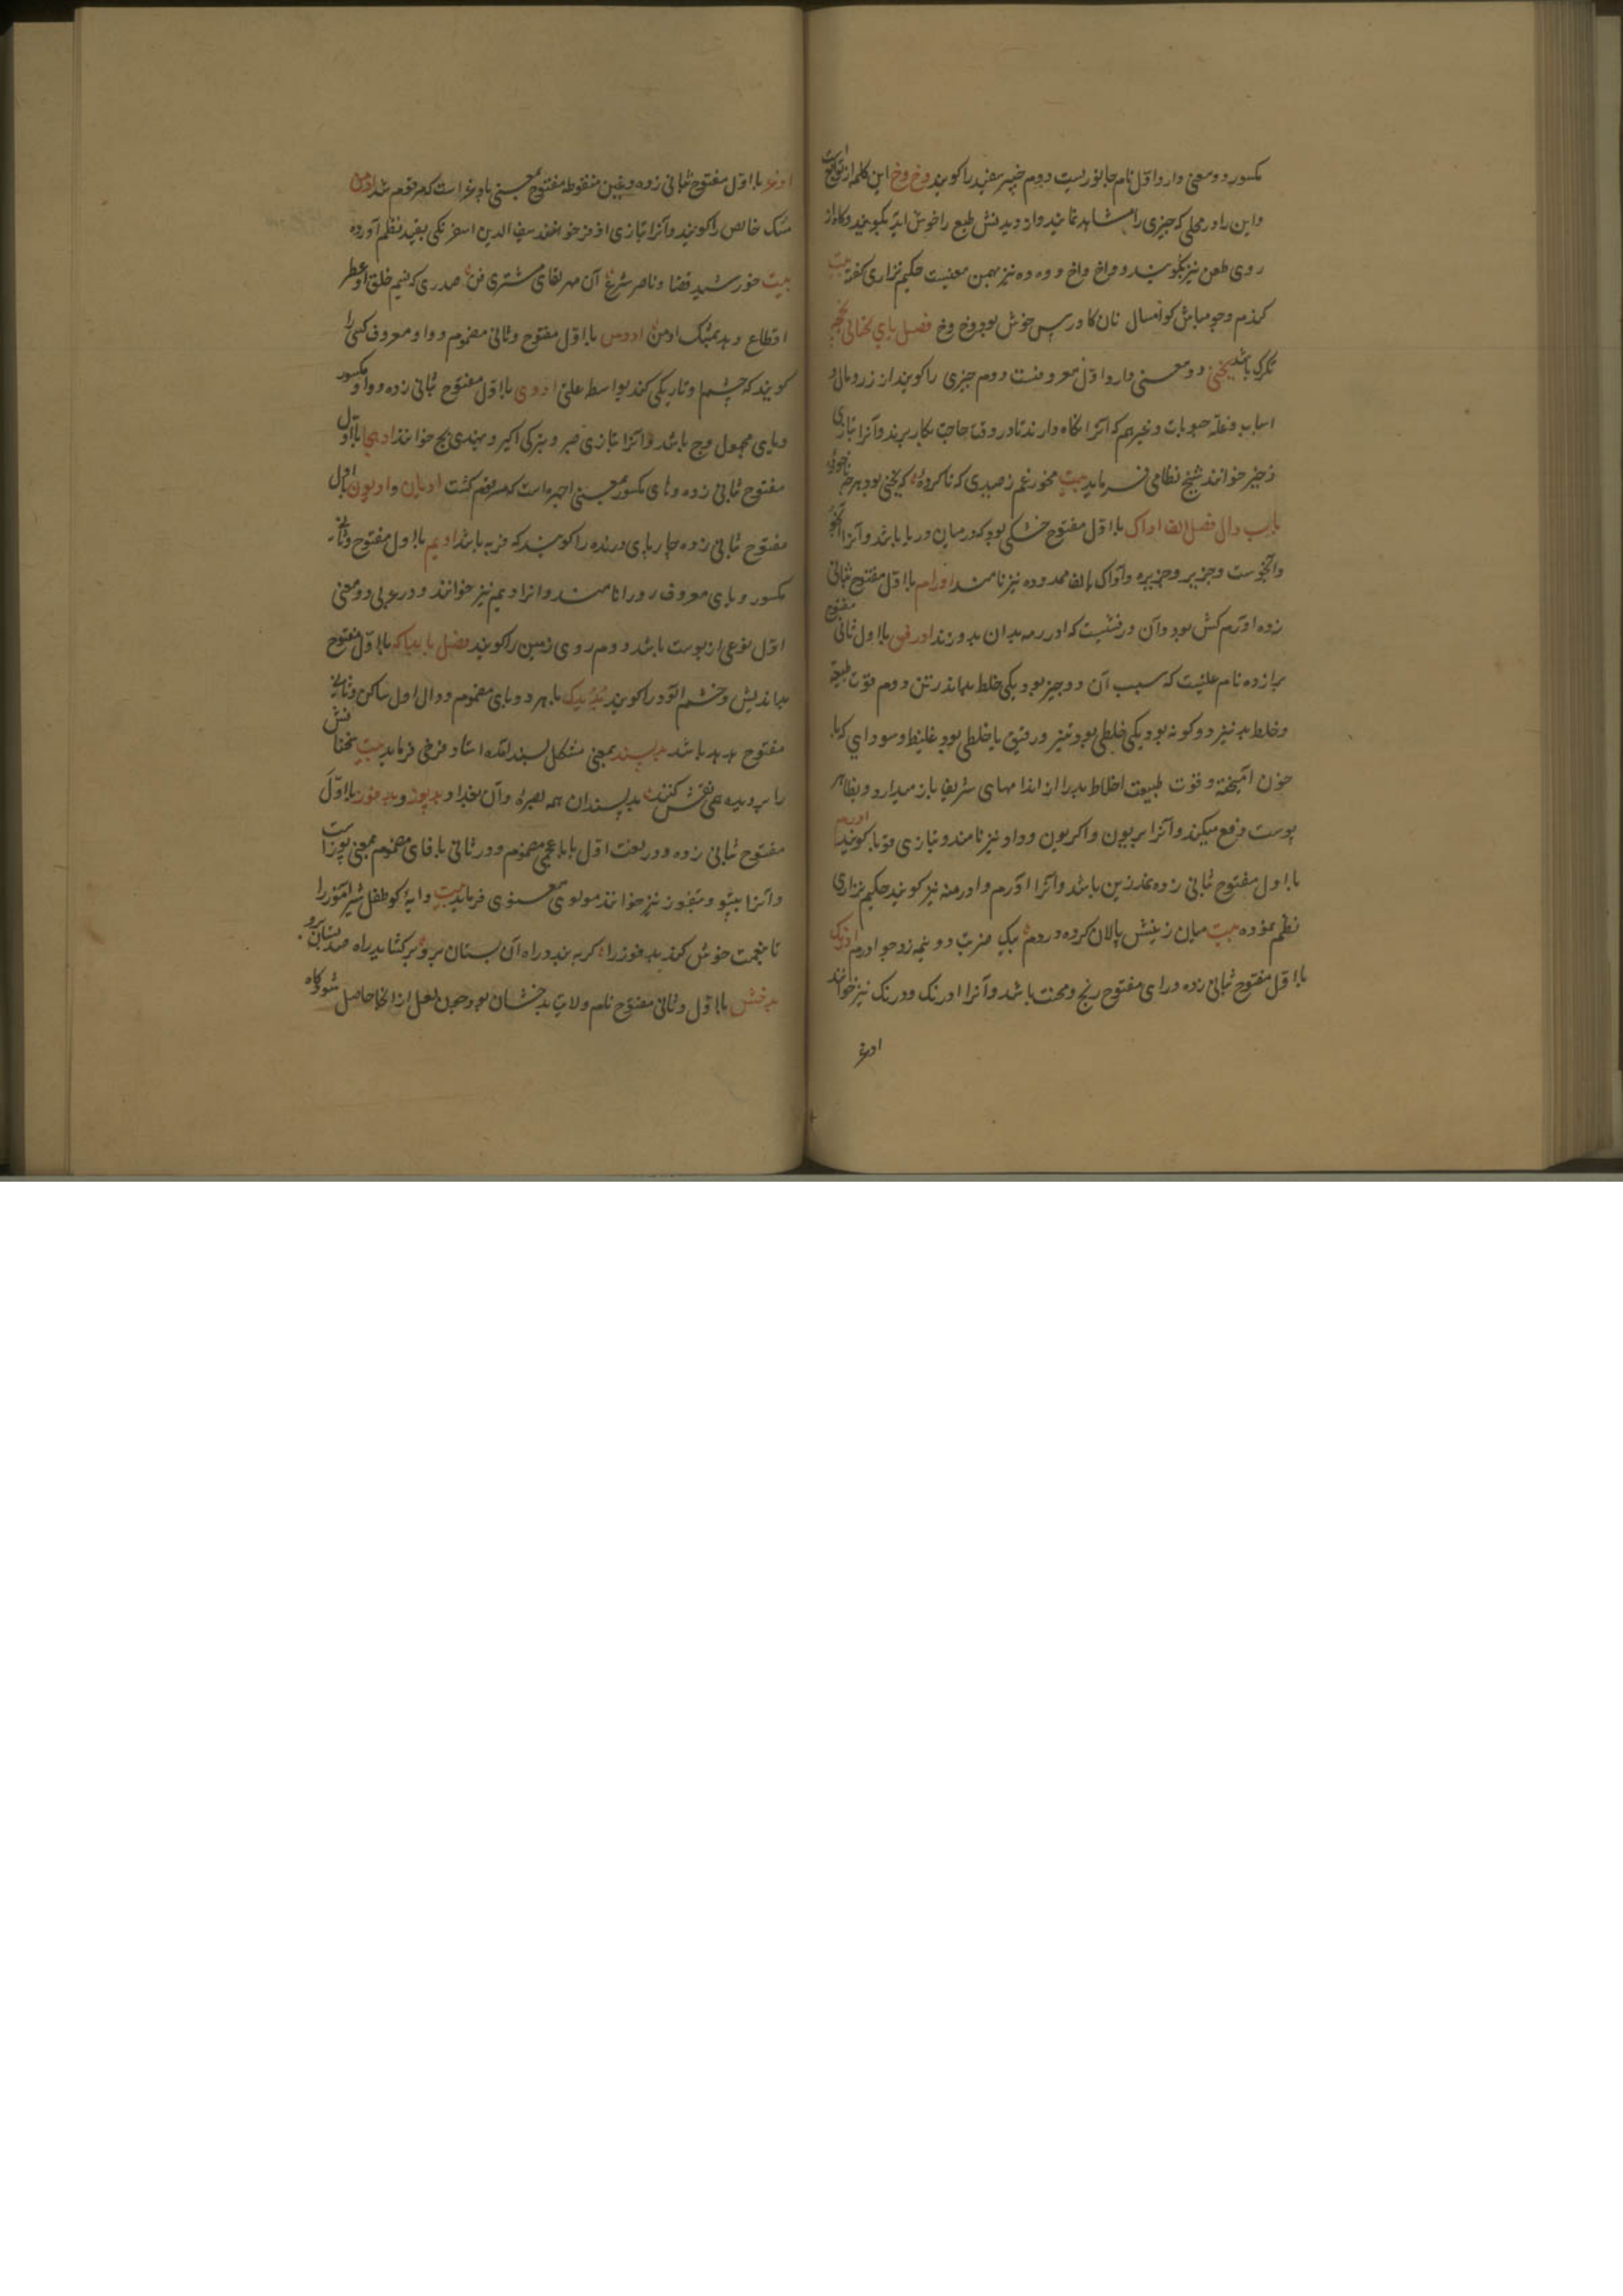 مکسور دو معنی دارد اول نام جانوریست دوم خیر سفید را کویند وخ وخ این کلمه از توابع است
و این را در محلی که چیزی را مشاهد نمایند و از دیدنش طبع را خوش آید بکویند و کاه از
روی طعن نیز بکویند و واخ واخ و وه وه نیز بهمین معنیست حکیم نزاری کفته بیت
کندم و جو مباش کو امسال نان کاورس خوش بود وخ وخ فصل یای تحتانی یخچه
تکرک باشد یخنی دو معنی دارد اول معروفست دوم چیزی را کویند از زر و مال و
اسباب و غله حبوبات و غیرهم که آنرا نکاه دارند تا در وقت حاجت بکار برند و آنرا بتازی
ذخیر خوانند شیخ نظامی فرماید بیت مخور غم ز صیدی که ناکرده که یخنی بود هرچه ناخورده
باب دال فصل الف اداک با اول مفتوح خشکی بود که در میان دریا باشد و آنرا آبخو
و آبخوست و جزیر و جزیره و آداک بالف ممدوده نیز نامند ادرام با اول مفتوح ثانی
زده ادرم کش بود و آن درفشیست که ادرمه بدان بدوزند ادرفن با اول ثانی مفتوح
برا زده نام علتیست که سبب آن دو چیز بود یکی خلط بد اندر تن دوم قوت طبیعة
و خلط بد نیز دو کونه بود یکی خلطی بود تیز و رقیق یا خلطی بود غلیظ و سودای که با
خون آمیخته و قوت طبیعت اخلاط بد را از اندامهای شریف باز میدارد و بظاهر
پوست دفع میکند و آنرا بریون و اکریون و داد نیز نامند و بتازی قوبا کویند ادرم
با اول مفتوح ثانی زده نمد زین باشد و آنرا آدرم و ادرمه نیز کویند حکیم نزاری
نظم نموده بیت میان زینش پالان کرده در دم بیک ضربت دو نیمه زد چو ادرم ادرنک
با اول مفتوح ثانی زده و رای مفتوح رنج و محنت باشد و آنرا ادرنک و درنک نیز خوانند
ادرغ
با اول مفتوح ثانی زده و غین منقوطه مفتوح بمعنی بادرغر است که مرقوم شد ادفن
مشک خالص را کویند و آنرا بتازی اذفر خوانند سیف الدین اسفرنکی بقید نظم آورده
بیت خورشید قضا و ناصر شرع آن مهر لقای مشتری فن صدری که نسیم خلق او عطر
اقطاع دهد بمشک ادفن ادوس با اول مفتوح و ثانی مضموم و واو معروف کسی را
کویند که چشم او تاریکی کند بواسطه علتی ادوی با اول مفتوح ثانی زده و واو مکسور
و یای مجهول وج باشد و آنرا بتازی صبر و بترکی اکیر و بهندی بچ خوانند ادیجا با اول
مفتوح ثانی زده و های مکسور بمعنی اجهره است که مرقوم کشت ادیان و ادیون با اول
مفتوح ثانی زده چارپای درنده را کویند که فربه باشد ادیم با اول مفتوح و ثانی
مکسور و یای معروف رو را نامند و آنرا دیم نیز خوانند و در عربی دو معنی
اول نوعی از پوست باشد دوم روی زمین را کویند فصل با بدپاکه با اول مفتوح
بد اندیش و خشم آلود را کویند بُدبُدک با هر دو بای مضموم و دال اول ساکن و ثانی
مفتوح هدهد باشد بدپسند بمعنی مشکل پسند آمده استاد فرخی فرماید بیت نخشا نقش
را بر دیده می نقش کنند بدپسندان همه بصره و آن بغداد بدپوز و بدفوز با اول
مفتوح ثانی زده و در لغت اول با باء عجمی مضموم و در ثانی با فای مضموم بمعنی پوز است
و آنرا بتپو و بتفوز نیز خوانند مولوی معنوی فرماید بیت دایهٔ کو طفل شیر آموز را
تا بنعمت خوش کند بدفوز را کر ببندد راه آن پستان برو برکشاید راه صد بستان برو
بدخش با اول و ثانی مفتوح نام ولایت بدخشان بود چون لعل از آنجا حاصل شود کاه